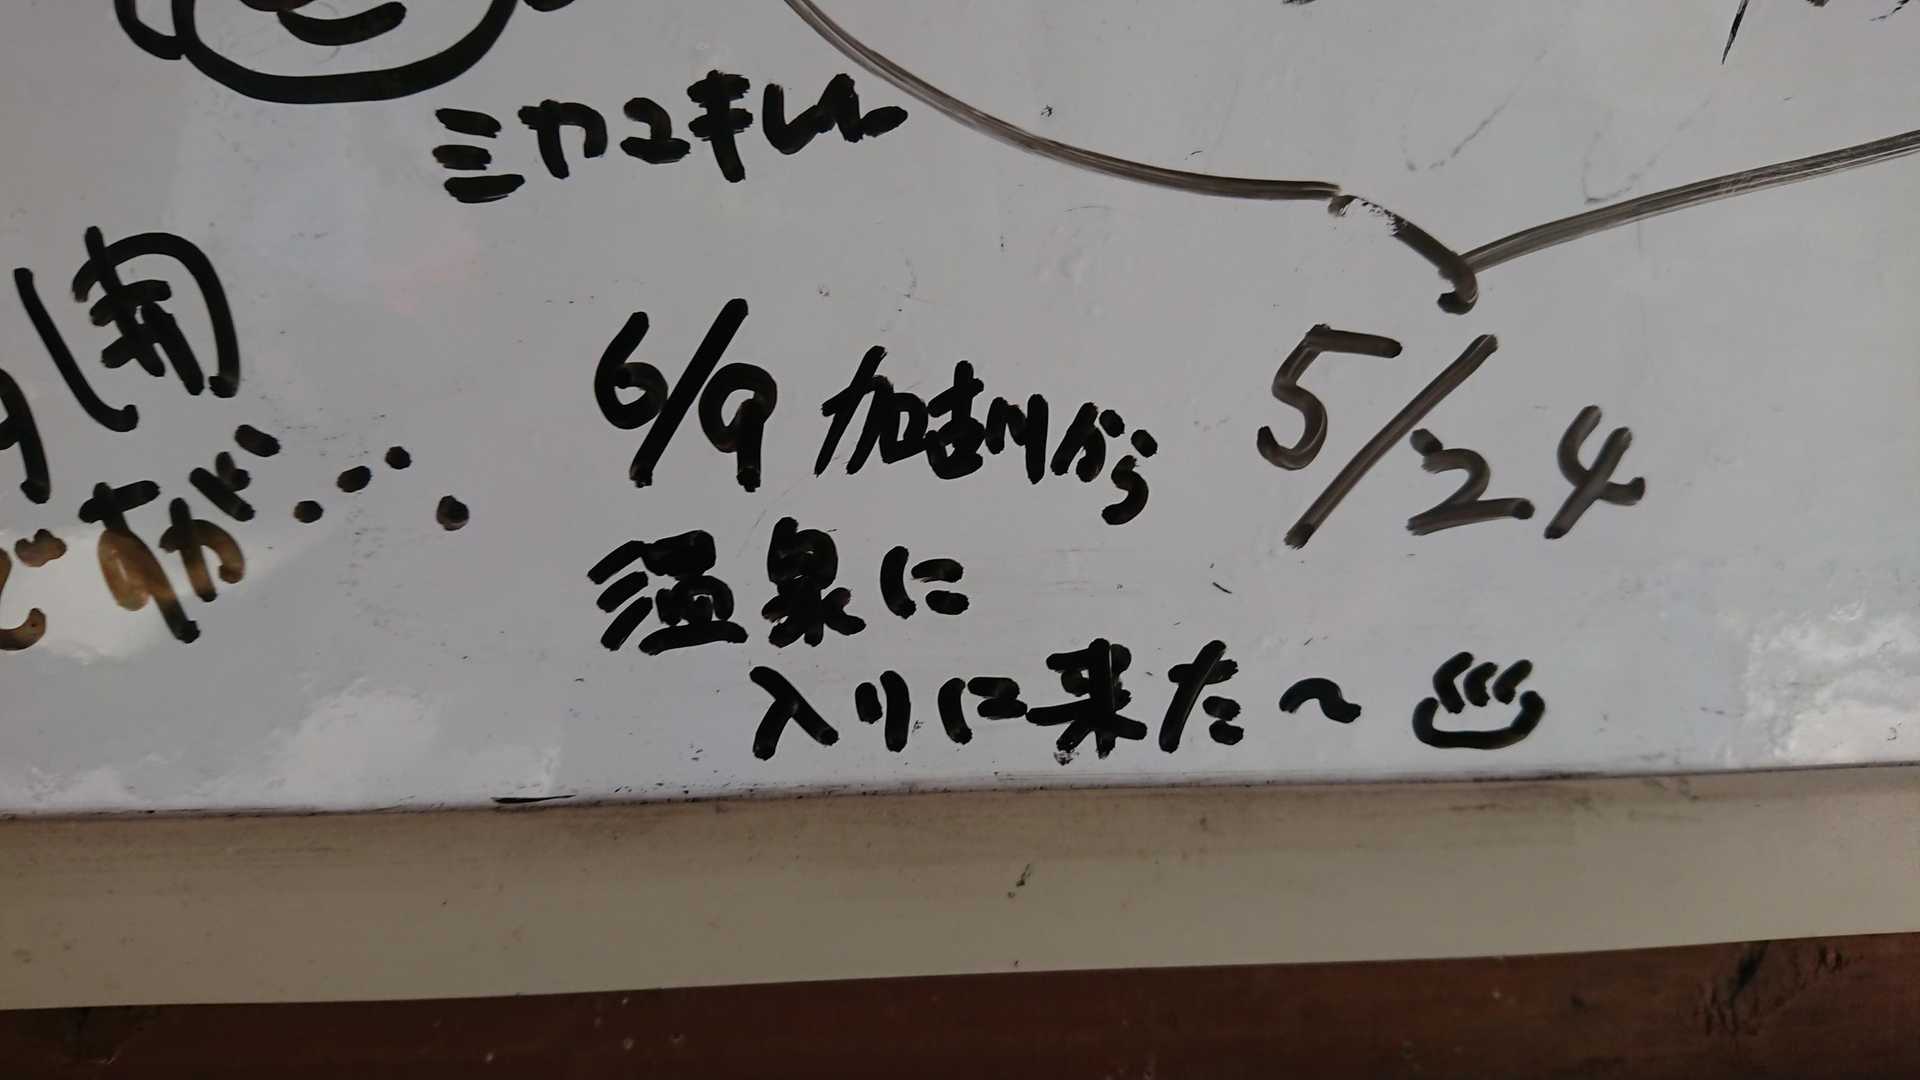 ミカユキしん
6/9 加古川から
温泉に
入りに来た～♨
5/24
ですが…